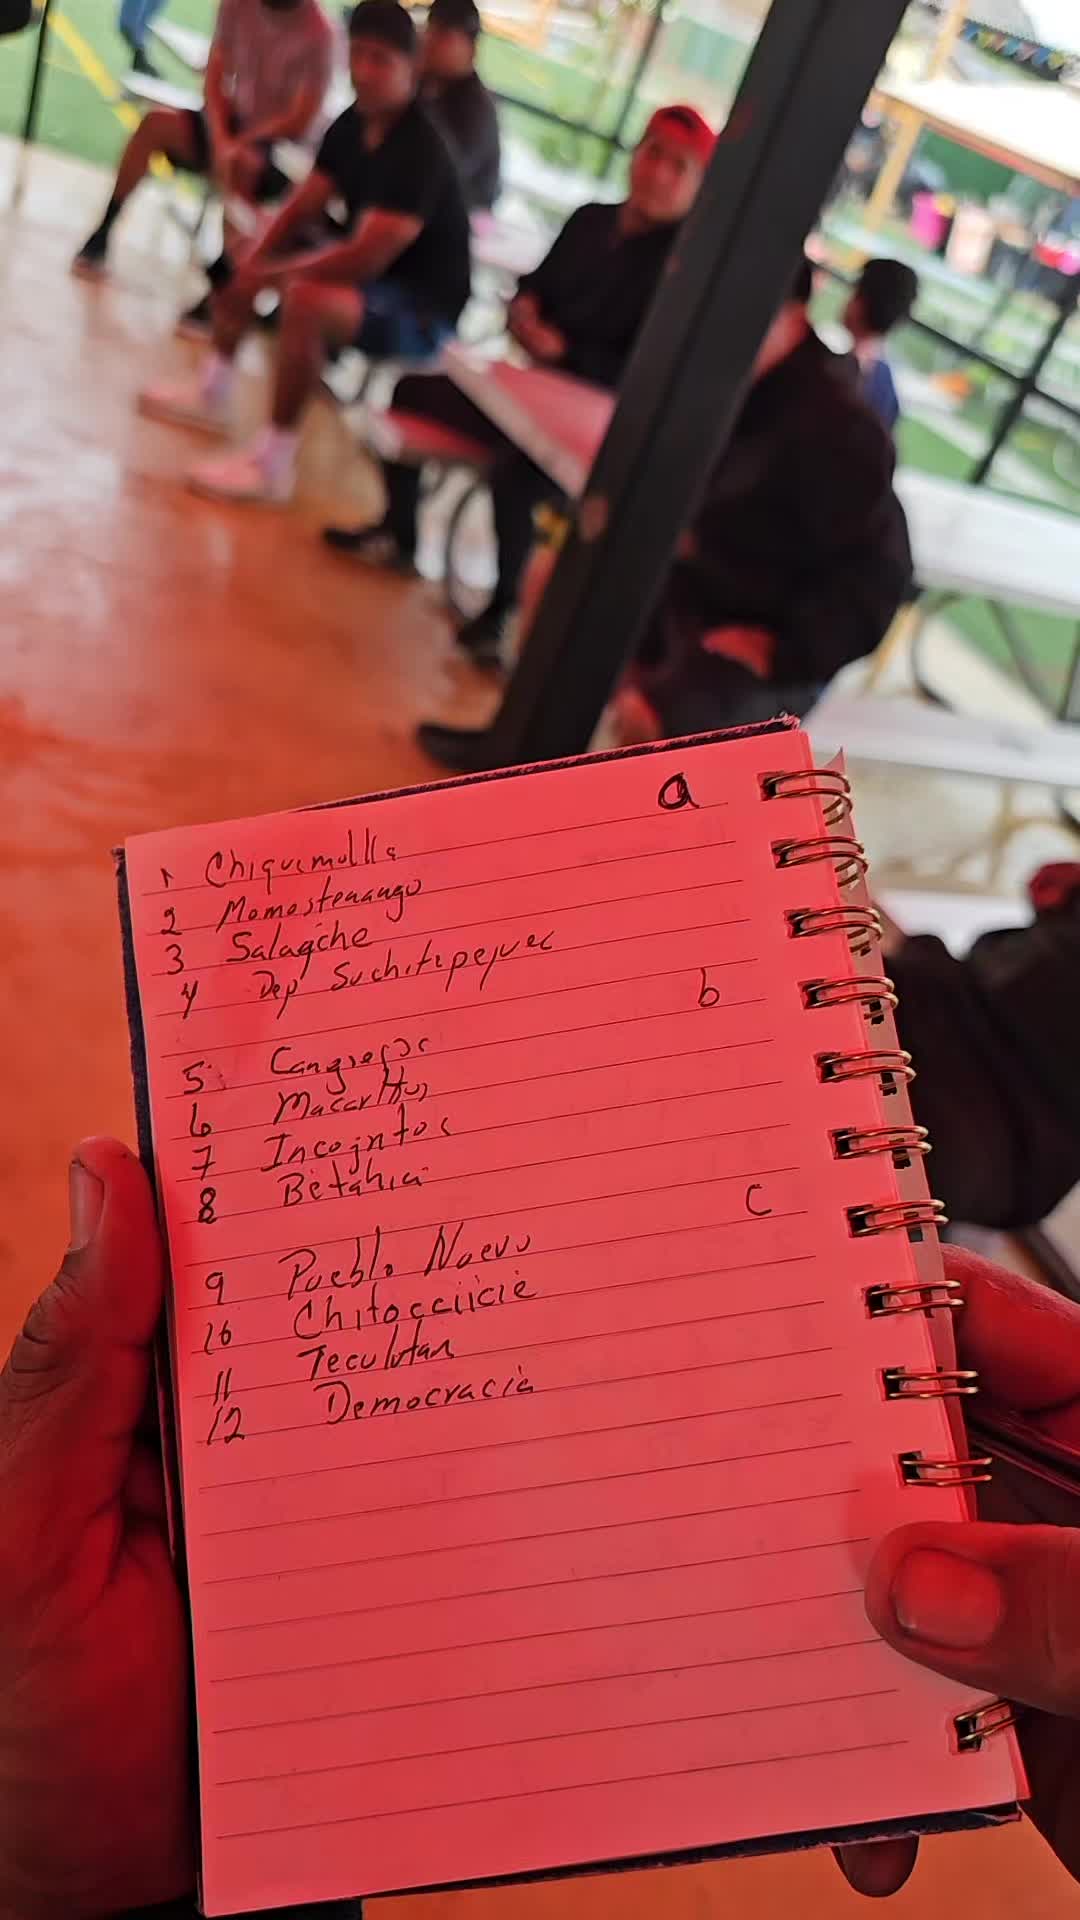 a
1 Chiquimulla
2 Momostenango
3 Salagche
4 Dep Suchitepequec
b
5 Cangrejos
6 Macarttos
7 Incogntos
8 Betania
c
9 Pueblo Nuevo
10
11 Teculutan
12 Democracia